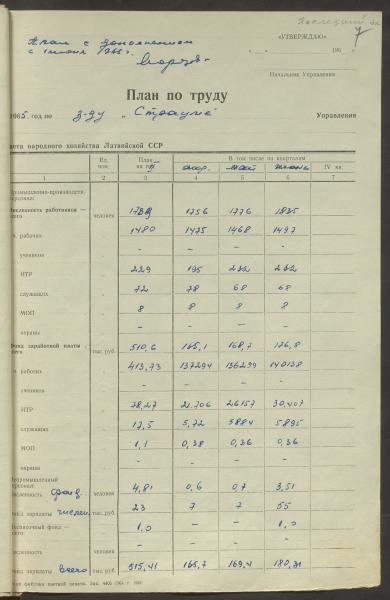 Последний
7
План с дополнением
с 1 июля 1965 г.
«УТВЕРЖДАЮ»
196 г
Начальник Управления
План по труду
1965. год по з-ду „Страуме" Управления
вета народного хозяйства Латвийской ССР
Ед. изм. План на В том числе по кварталам
апр. май июнь IV кв.
1 2 3 4 5 6 7
Промышленно-производств. персонал:
Численность работников —
его человек 1756 1776 1835
ч. рабочих 1480 1475 1468 1497
учеников — — —
ИТР 229 195 232 232
служащих 72 78 68 68
МОП 8 8 8 8
охраны — — — —
Фонд заработной платы
его тыс. руб. 510,6 165,1 168,7 176,8
ч. рабочих 413,73 137294 136299 140138
учеников — — — —
ИТР 78,27 21.706 26157 30,407
служащих 17,5 5,72 5884 5895
МОП 1,1 0,38 0,36 0,36
охраны — — — —
Непромышленный персонал:
численность фонд человек 4,81 0,6 0,7 3,51
фонд зарплаты числен тыс. руб. 23 7 7 55
Безлюдный фонд — 1,0 — — 1,0
численность человек
фонд зарплаты всего тыс. руб. 515,41 165,7 169,4 180,31
ая фабрика цветной печати. Зак. 4405 1964 г.